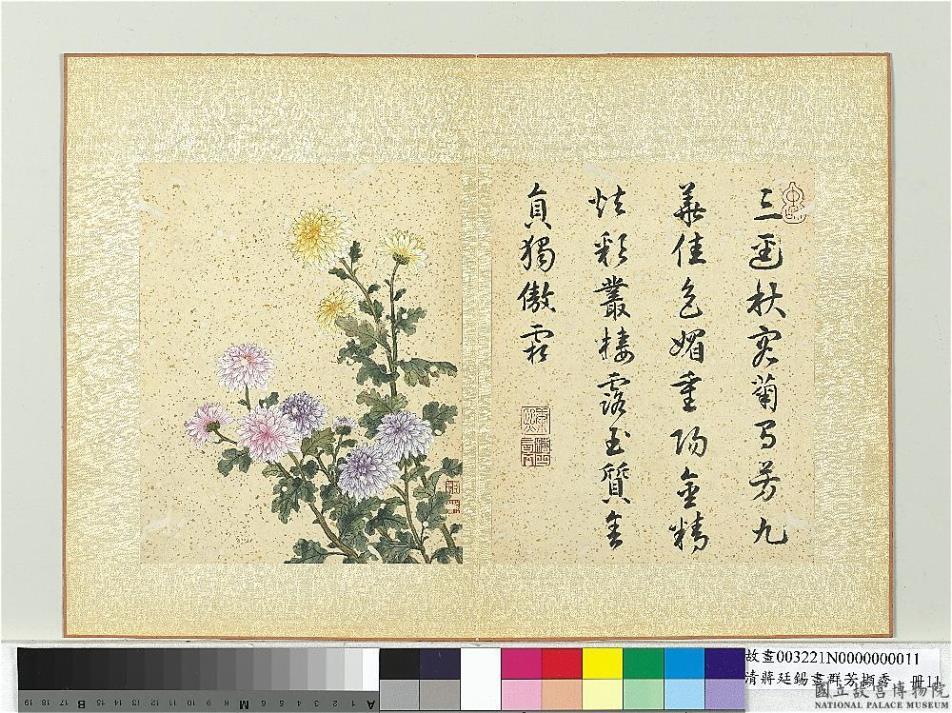 三逕秋容菊有芳九
華佳色媚重陽金精
炫彩叢棲露玉質含
貞獨傲霜
故畫003221N0000000011
清蔣廷錫畫群芳擷香 冊11
國立故宮博物院
NATIONAL PALACE MUSEUM
19 18 17 16 15 B 14 13 12 11 10 9 8 7 M 6 5 4 3 2 1 A